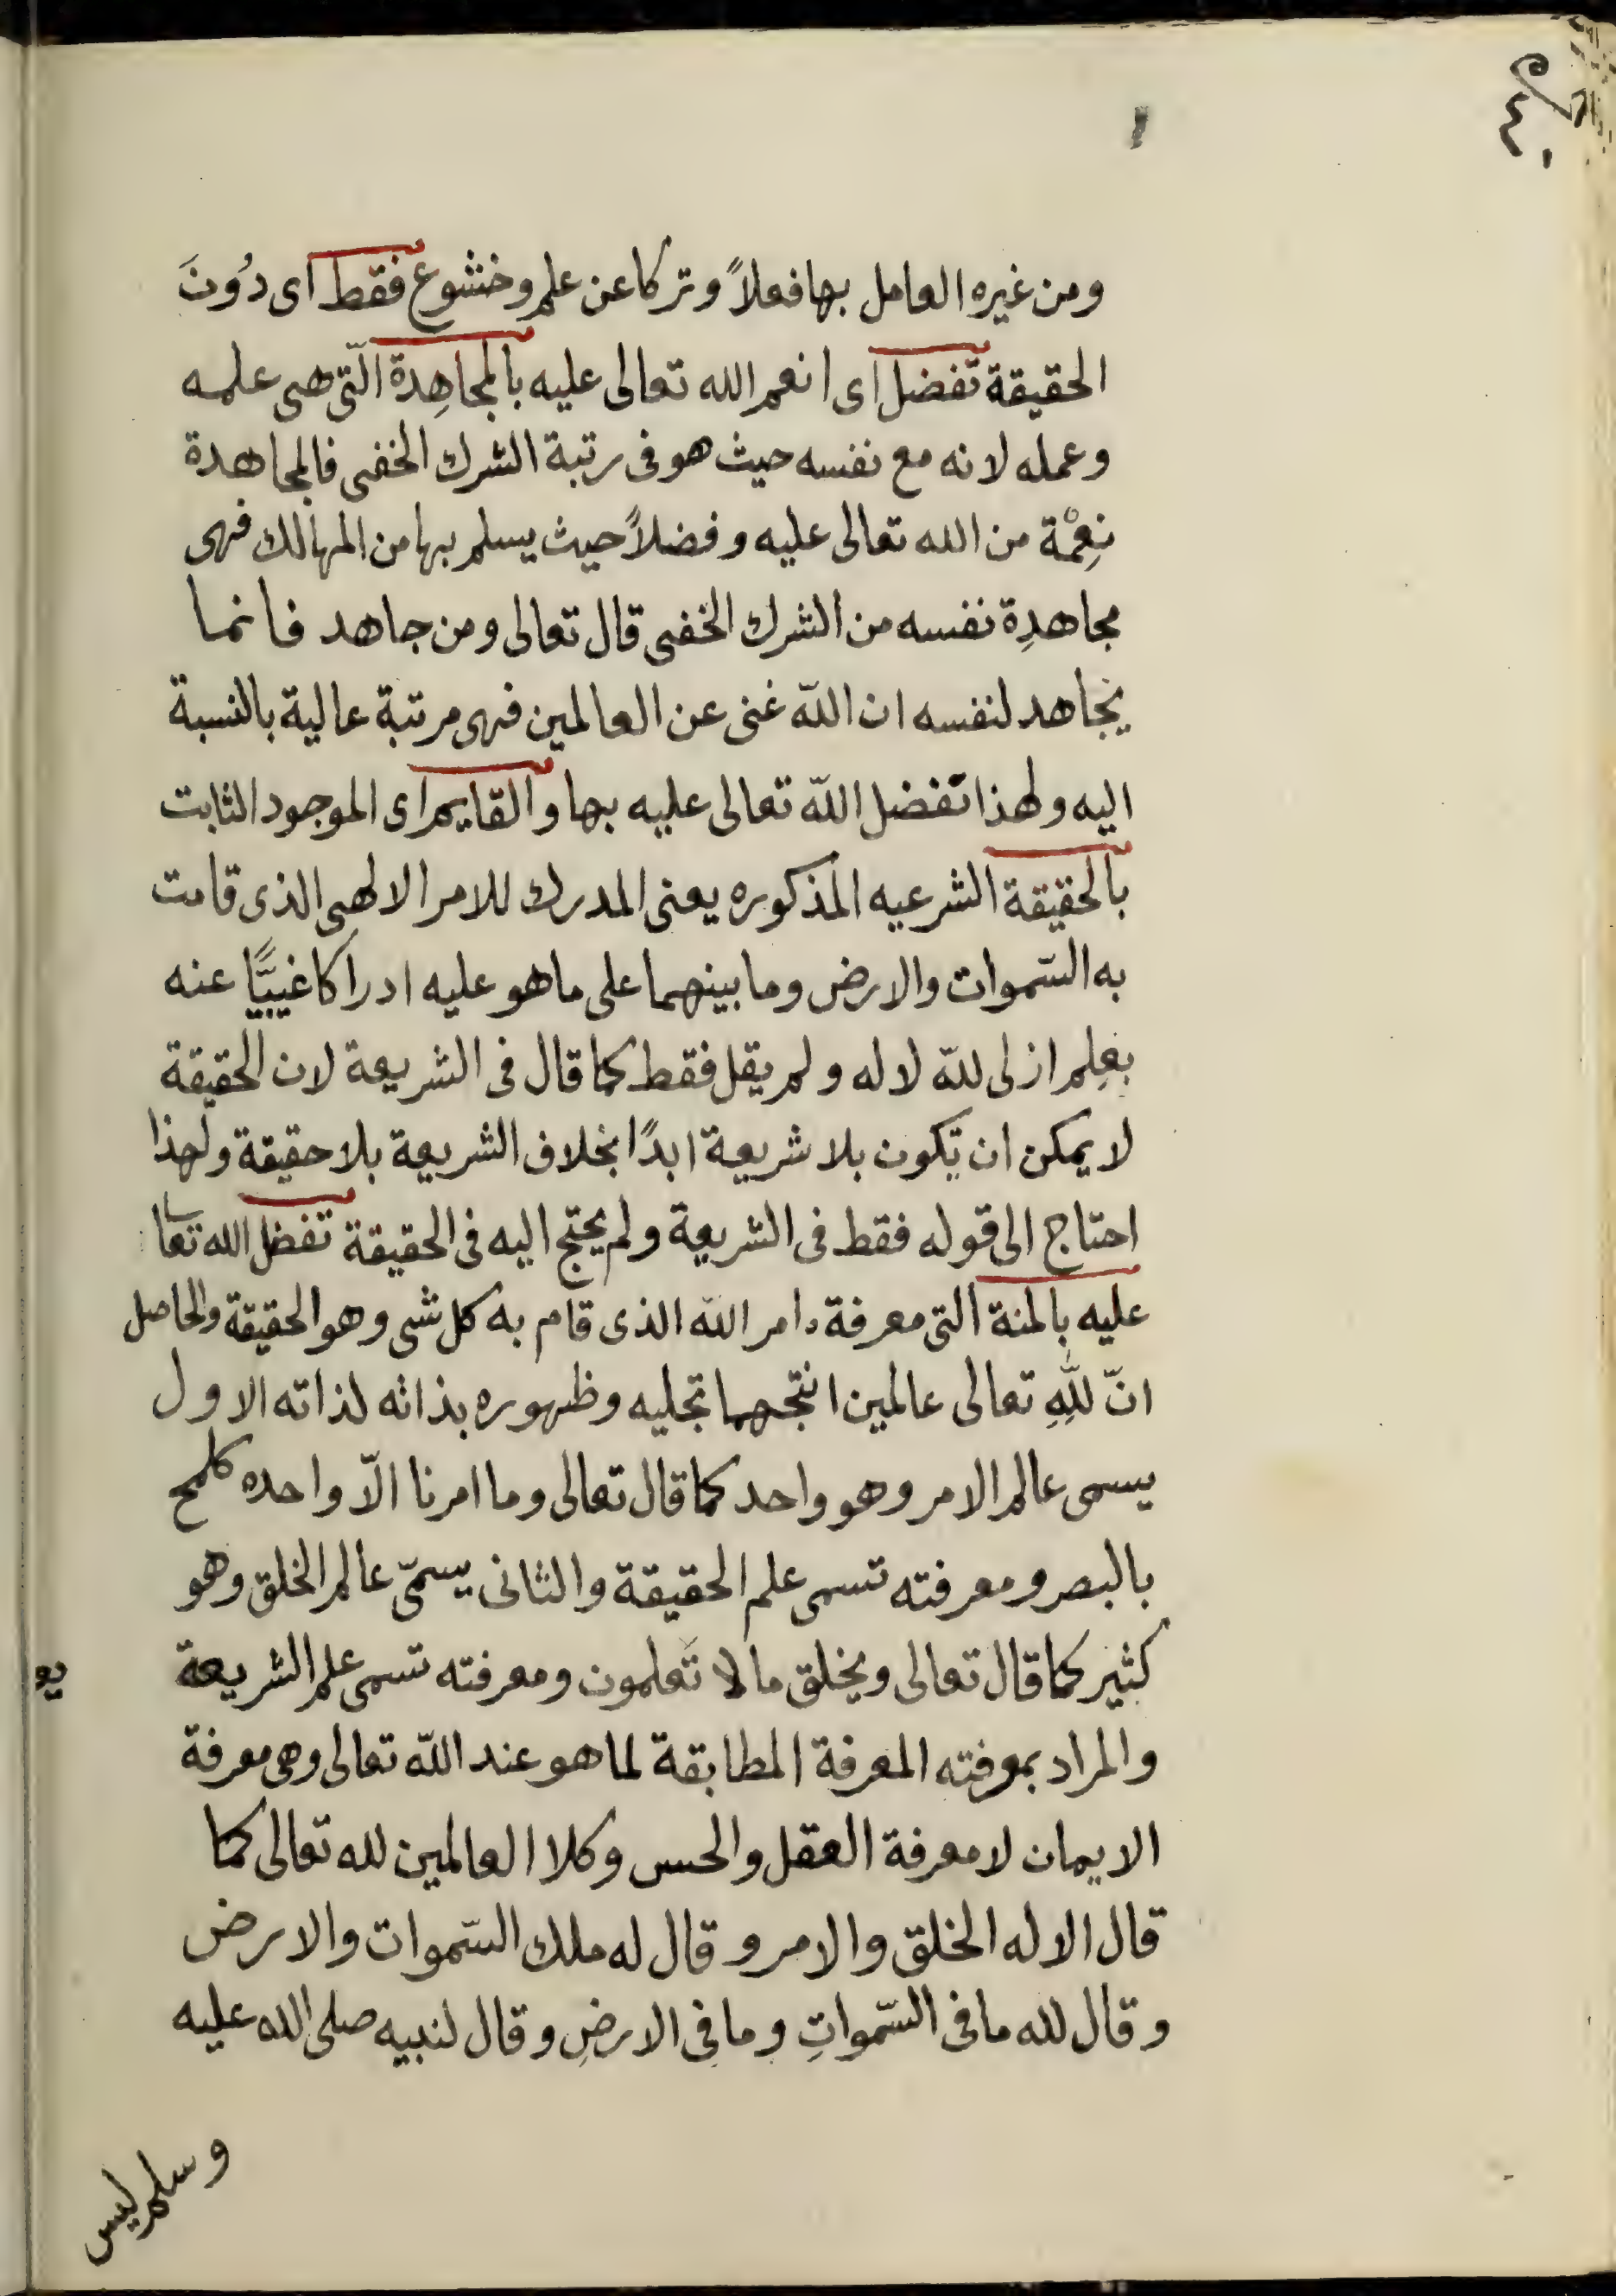 ومن غيره العامل بها فعلاً وتركا عن علم وخشوع فقط اى دُونَ
الحقيقة تفضل اى انعم الله تعالى عليه بالمجاهِدة الّتى هى علمه
وعمله لانه مع نفسه حيث هو فى رتبة الشرك الخفى فالمجاهدة
نِعْمة من الله تعالى عليه وفضلاً حيث يسلم بها من المهالك فهى
مجاهدِة نفسه من الشرك الخفى قال تعالى ومن جاهد فانما
يجاهد لنفسه ان اللّه غنى عن العالمين فهى مرتبة عالية بالنسبة
اليه ولهذا تفضل اللّه تعالى عليه بها والقايم اى الموجود الثابت
بالحقيقة الشرعيه المذكوره يعنى المدرك للامر الالهى الذى قامت
به السّموات والارض وما بينهما على ما هو عليه ادراكا غيبيًّا عنه
بعِلم ازلى للّه لا له ولم يقل فقط كما قال فى الشريعة لان الحقيقة
لا يمكن ان تكون بلا شريعة ابدًا بخلاف الشريعة بلا حقيقة ولهذا
احتاج الى قوله فقط فى الشريعة ولم يحتج اليه فى الحقيقة تفضل الله تعا
عليه بالمنة التى معرفة امر اللّه الذى قام به كل شى وهو الحقيقة والحاصل
انّ للّهِ تعالى عالمين انتجهما تجليه وظهوره بذاته لذاته الاول
يسمى عالم الامر وهو واحد كما قال تعالى وما امرنا الّا واحده كلمح
بالبصر ومعرفته تسمى علم الحقيقة والثانى يسمّى عالم الخلق وهو
كثير كما قال تعالى ويخلق ما لا تَعلمون ومعرفته تسمى علم الشريعة
والمراد بمعرفته المعرفة المطابقة لما هو عند اللّه تعالى وهى معرفة
الايمان لا معرفة العقل والحس وكلا العالمين لله تعالى كما
قال الا له الخلق والامر وقال له ملك السّموات والارض
وقال لله ما فى السّمواتِ وما فى الارضِ وقال لنبيه صلى الله عليه
وسلم ليس